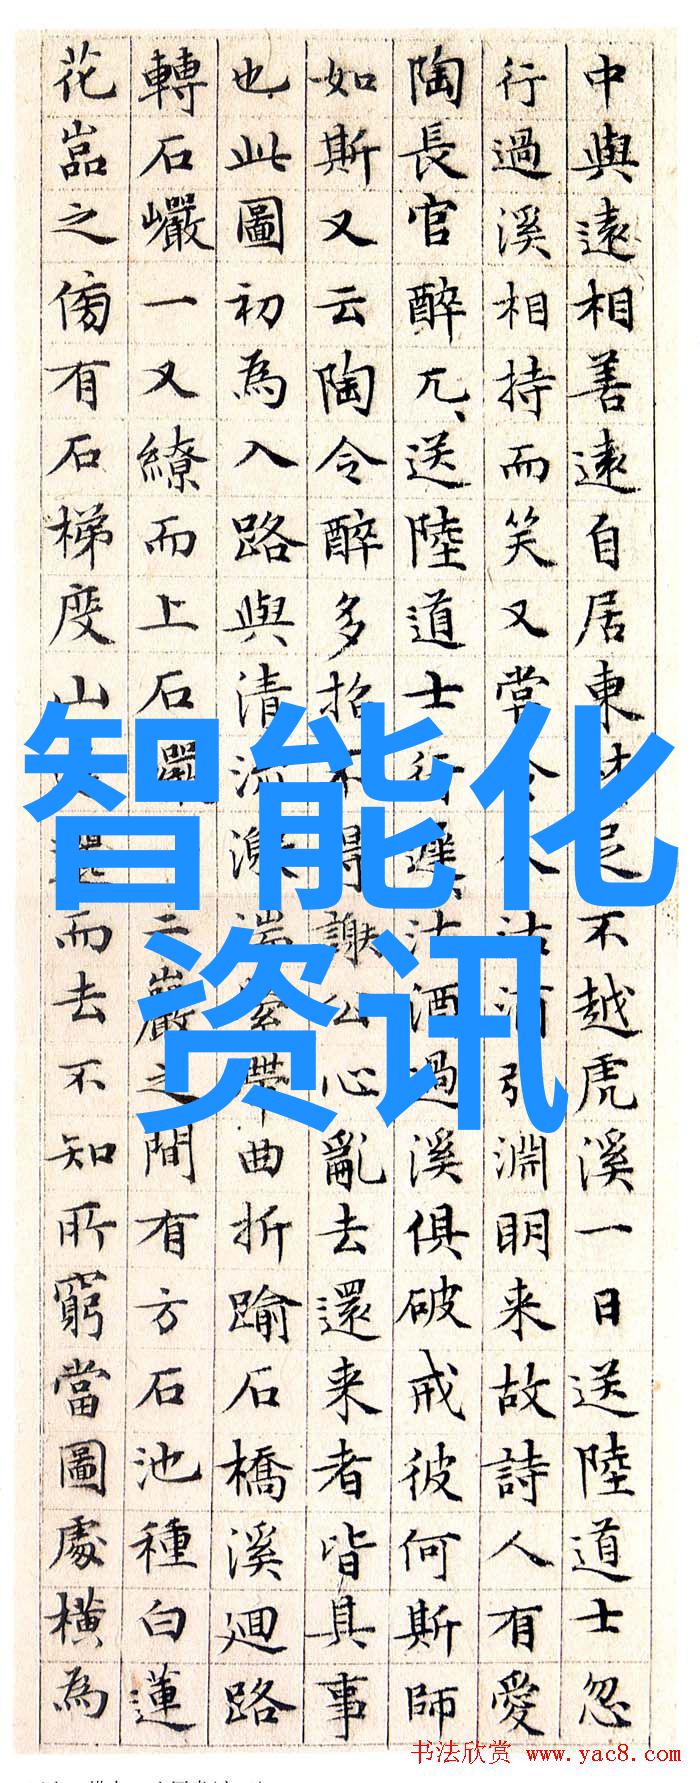 中與遠相善遠自居東林足不越虎溪一日送陸道士忽
行過溪相持而笑又常令人沽酒引淵明来故詩人有愛
陶長官醉兀、送陸道士行遲、沽酒過溪俱破戒彼何斯師
如斯又云陶令醉多招不得謝公心亂去還来者皆其事
也此圖初為入路與清流激湍縈帶曲折踰石橋溪迴路
轉石巖一又繚而上石巖二巖之間有方石池種白蓮
花嵓之傍有石梯度山而去不知所窮當圖處橫為
智能化
资讯
书法欣赏 www.yac8.com